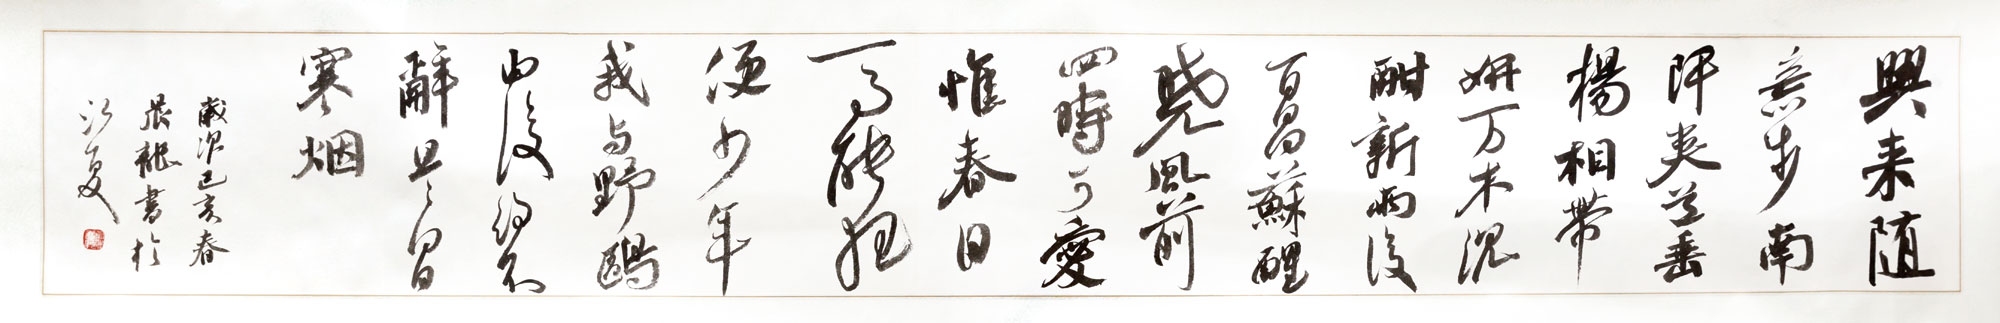 興来随
意步南
阡夹道垂
楊相帶
妍万木沉
酣新雨後
百昌蘇醒
曉風前
四時可愛
惟春日
一事能狂
便少年
我与野鷗
申後約不
辭旦〻冒
寒烟
歲次己亥春
晨龍書於
江夏